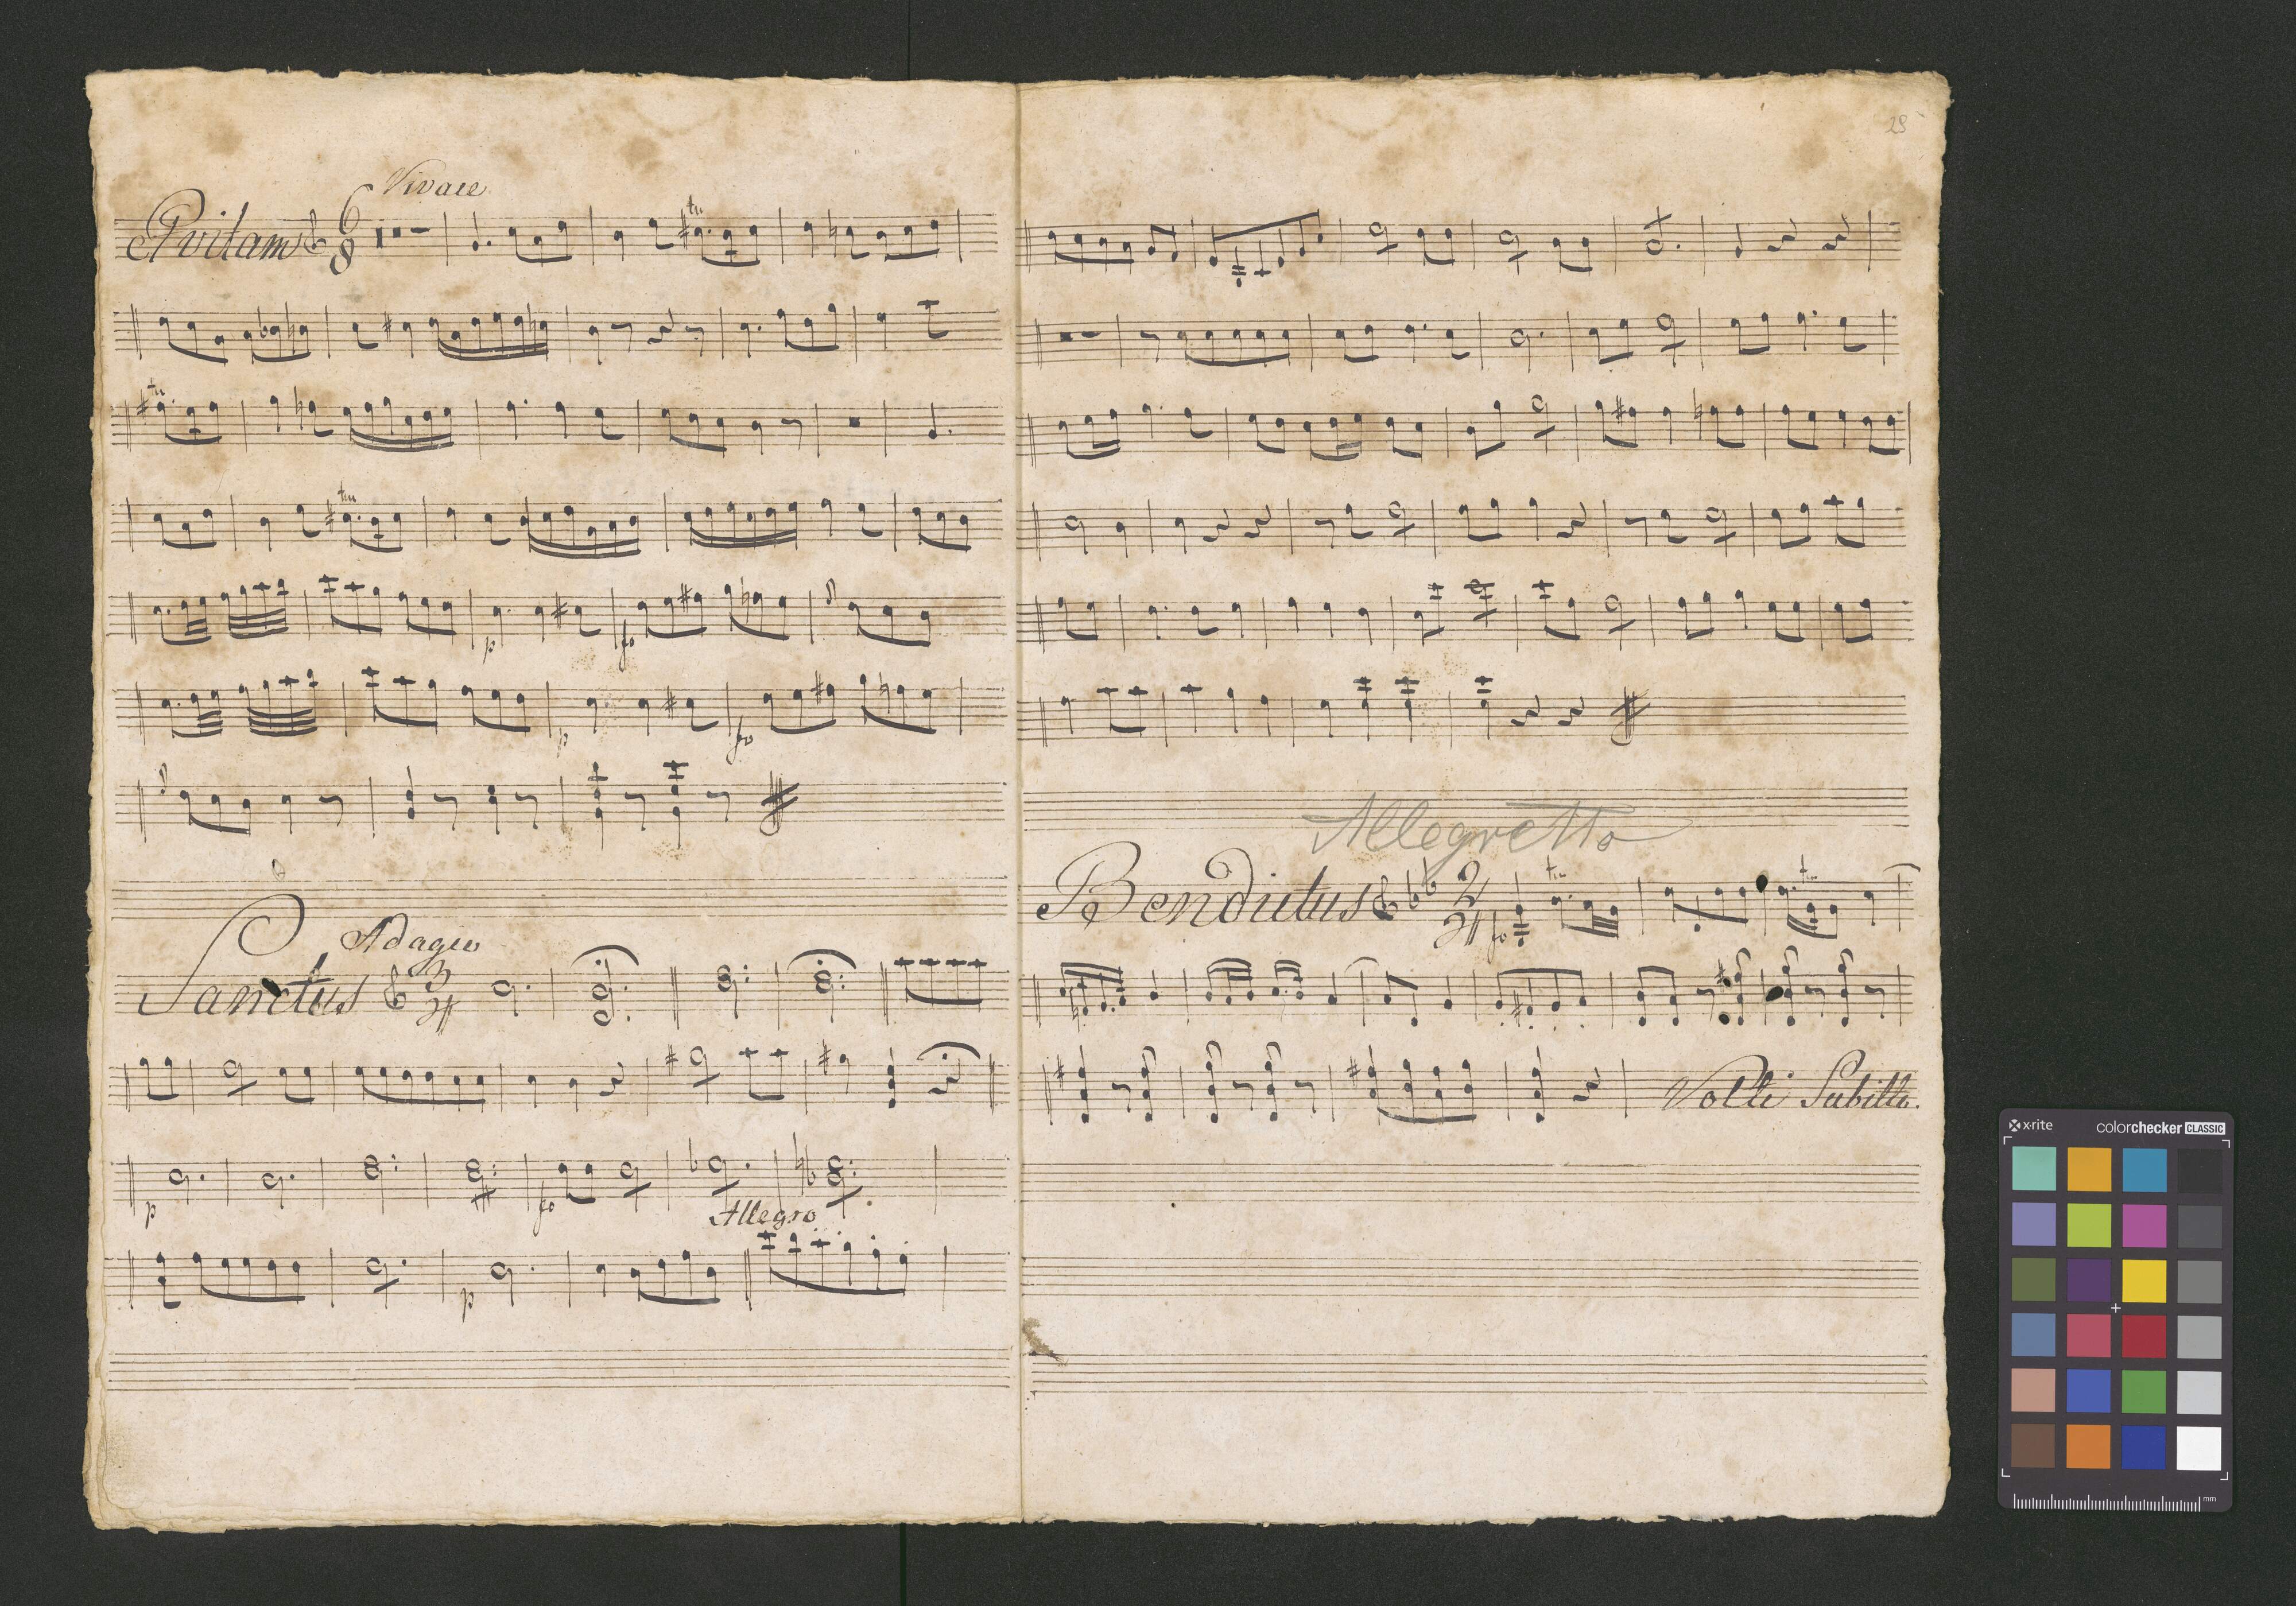 Vivace
Et vitam 6 8
tr
tr
tr
p fo
p fo
Adagio
Sanctus 3 4
p fo
Allegro
p
29
Allegretto
Bendictus 2 4 fo tr tr
Volti Subitto.
x·rite colorchecker CLASSIC
mm